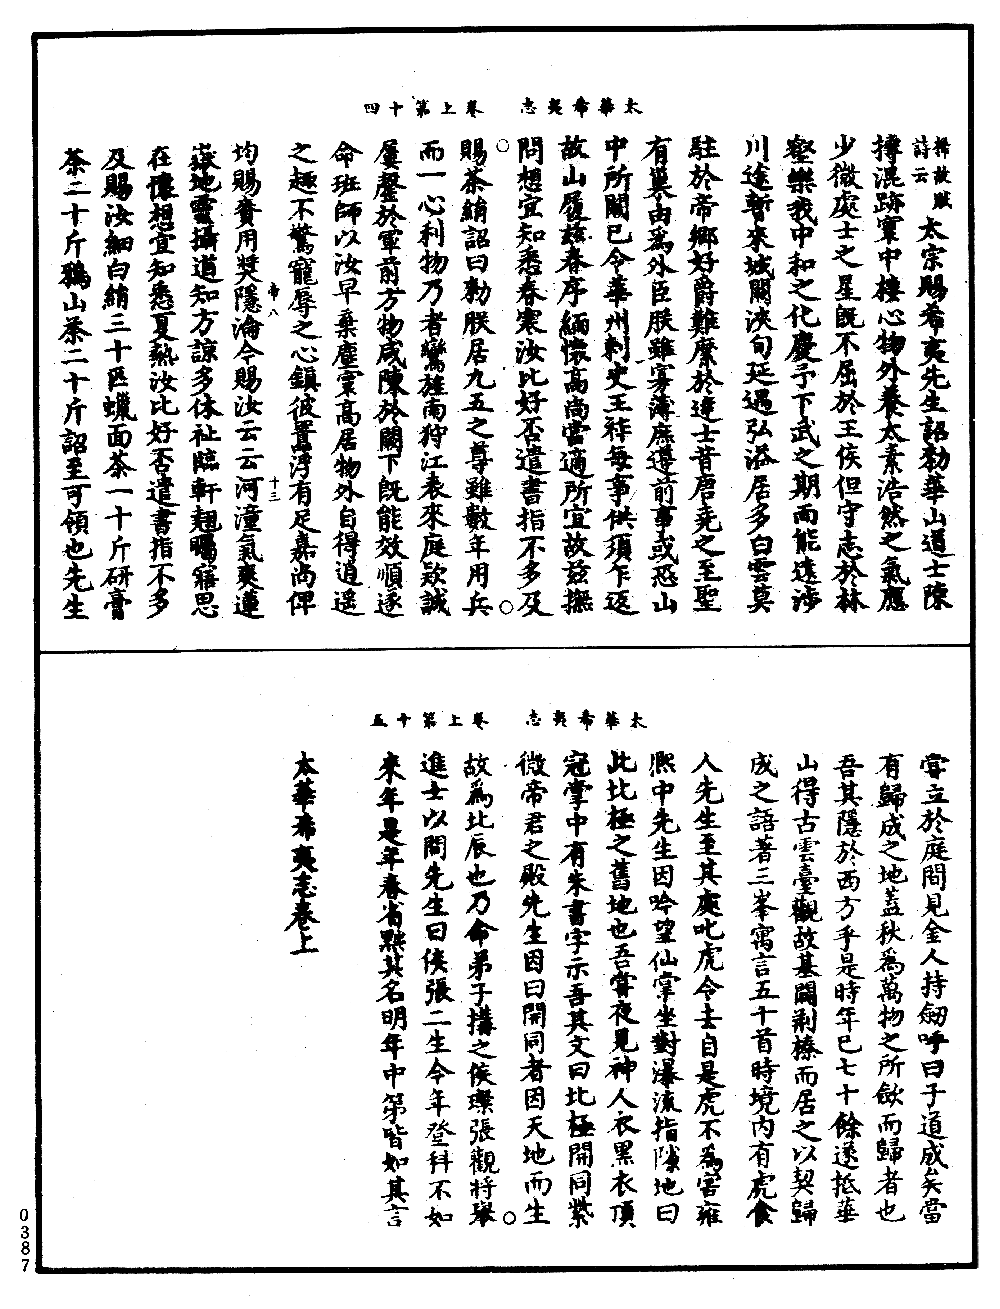 太華希夷志　卷上第十四
搏故賦詩云　太宗賜希夷先生詔勑華山道士陳
摶混跡寰中棲心物外養太素浩然之氣應
少微處士之星既不屈於王侯但守志於林
壑樂我中和之化慶予下武之期而能遠涉
川途暫來城闕浹旬延遇弘溢居多白雲莫
駐於帝鄉好爵難縻於達士昔唐堯之至聖
有巢由為外臣朕雖寡薄庶遵前事或恐山
中所闕已令華州刺史王祚每事供須乍返
故山履茲春序緬懷高尚當適所宜故茲撫
問想宜知悉春寒汝比好否遣書指不多及
○賜茶絹詔曰勑朕居九五之尊雖數年用兵○
而一心利物乃者鸞旌南狩江表來庭欵誠
屢罄於軍前方物咸陳於闕下既能效順遂
命班師以汝早棄塵寰高居物外自得逍遥
之趣不驚寵辱之心鎮彼囂浮有足嘉尚俾
帝八　十三
均賜賚用奬隱淪今賜汝云云河潼氣爽蓮
嶽地靈攝道知方諒多休祉臨軒翹矚寤思
在懷想宜知悉夏熱汝比好否遣書指不多
及賜汝細白絹三十匹蠟面茶一十斤研膏
茶二十斤鴉山茶二十斤詔至可領也先生
太華希夷志　卷上第十五
甞立於庭間見金人持劒呼曰子道成矣當
有歸成之地蓋秋爲萬物之所斂而歸者也
吾其隱於西方乎是時年已七十餘遂抵華
山得古雲臺觀故基闢荆榛而居之以契歸
成之語著三峯寓言五十首時境内有虎食
人先生至其處叱虎令去自是虎不為害雍
熙中先生因吟望仙掌坐對瀑流指隙地曰
此北極之舊地也吾甞夜見神人衣黑衣頂
冠掌中有朱書字示吾其文曰北極開同紫
微帝君之殿先生因曰開同者因天地而生
故爲北辰也乃命弟子搆之侯璨張觀將舉○
進士以問先生曰侯張二生今年登科不如
來年是年春省黜其名明年中第皆如其言
太華希夷志卷上
0387